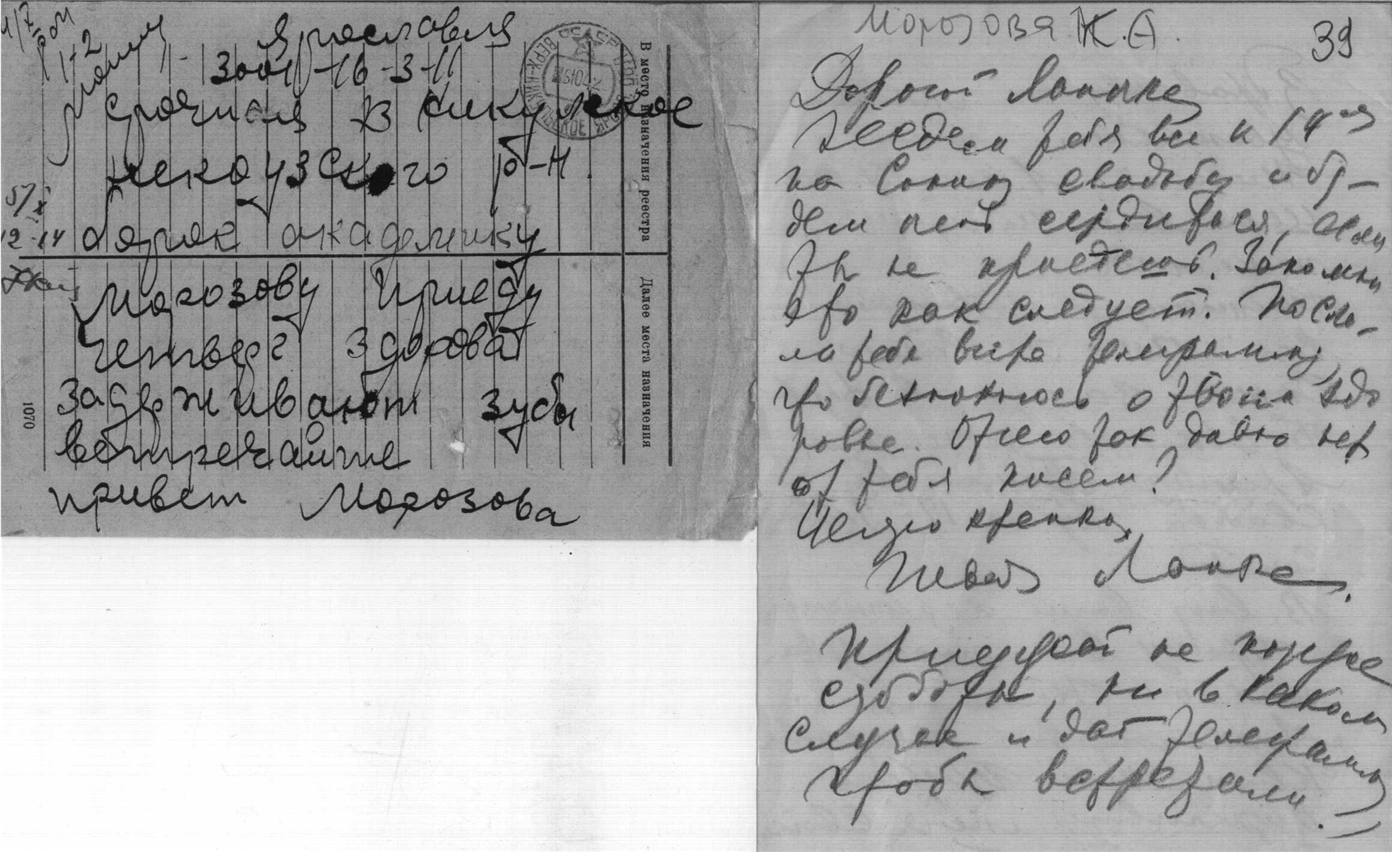 Ярославля
3001 -16 -3-11
срочная В никульское
некоузского р-н
борок академику
Морозову Приеду
четверг здорова
задерживают зубы
встречайте
привет Морозова
В место назначения реестра
Далее места назначения
1070
Морозова К. А.
39
Дорогой
Ждем тебя все к 14
на свадьбу и бу-
дем сердиться, если
ты не приедешь. Запомни
это как следует. Посла-
ла тебе вчера телеграмму,
что беспокоюсь о твоем здо
ровье. Отчего так давно нет
от тебя писем?
Целую крепко,
Твоя
Приезжай не позднее
субботы, ни в каком
случае и дай телеграмму
чтобы встретили!